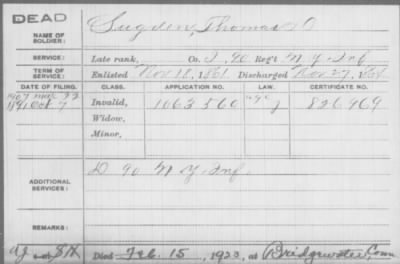 DEAD
NAME OF SOLDIER: Sugden, Thomas O
SERVICE: Late rank, Co. I, 90 Regt N.Y. Inf
TERM OF SERVICE: Enlisted Nov 18, 1861 Discharged Nov 27, 1864
DATE OF FILING. CLASS. APPLICATION NO. LAW. CERTIFICATE NO.
1907 Mar 22
1891 Oct 7 Invalid, 1063560 "G" J 826969
Widow,
Minor,
ADDITIONAL SERVICES: D 90 N.Y. Inf.
REMARKS:
Died Feb. 15, 1920, at Bridgewater, Conn